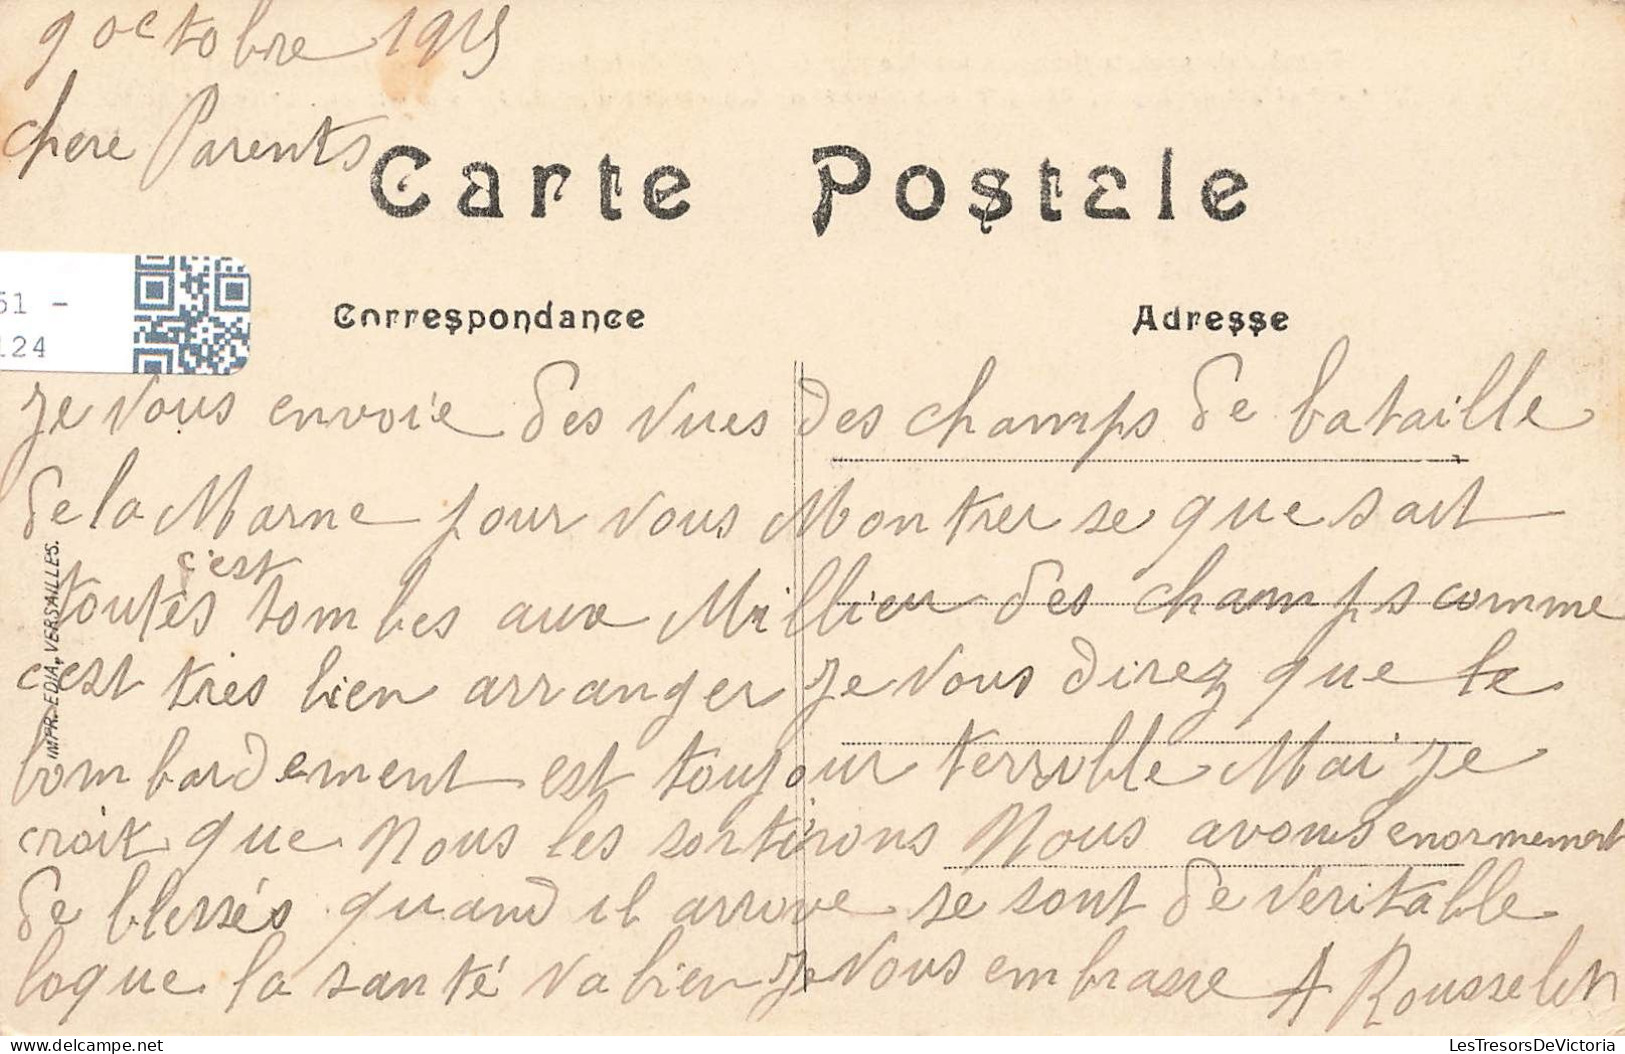 9 octobre 1915
chere Parents
Carte Postale
51 -
124
Correspondance
Adresse
je vous envoie des vues des champs de bataille
de la Marne pour vous Montrer se que sait
c'est
toutes tombes aux Millieu des champs comme
c'est tres bien arranger je vous direz que le
bombardement est toujour terrible Mai je
croit que Nous les sortirons Nous avons enormement
de blessés quand il arrive se sont de veritable
loque la santé va bien je vous embrasse A Rousselet
IMPR. EDIA, VERSAILLES.
LesTresorsDeVictoria
delcampe.net